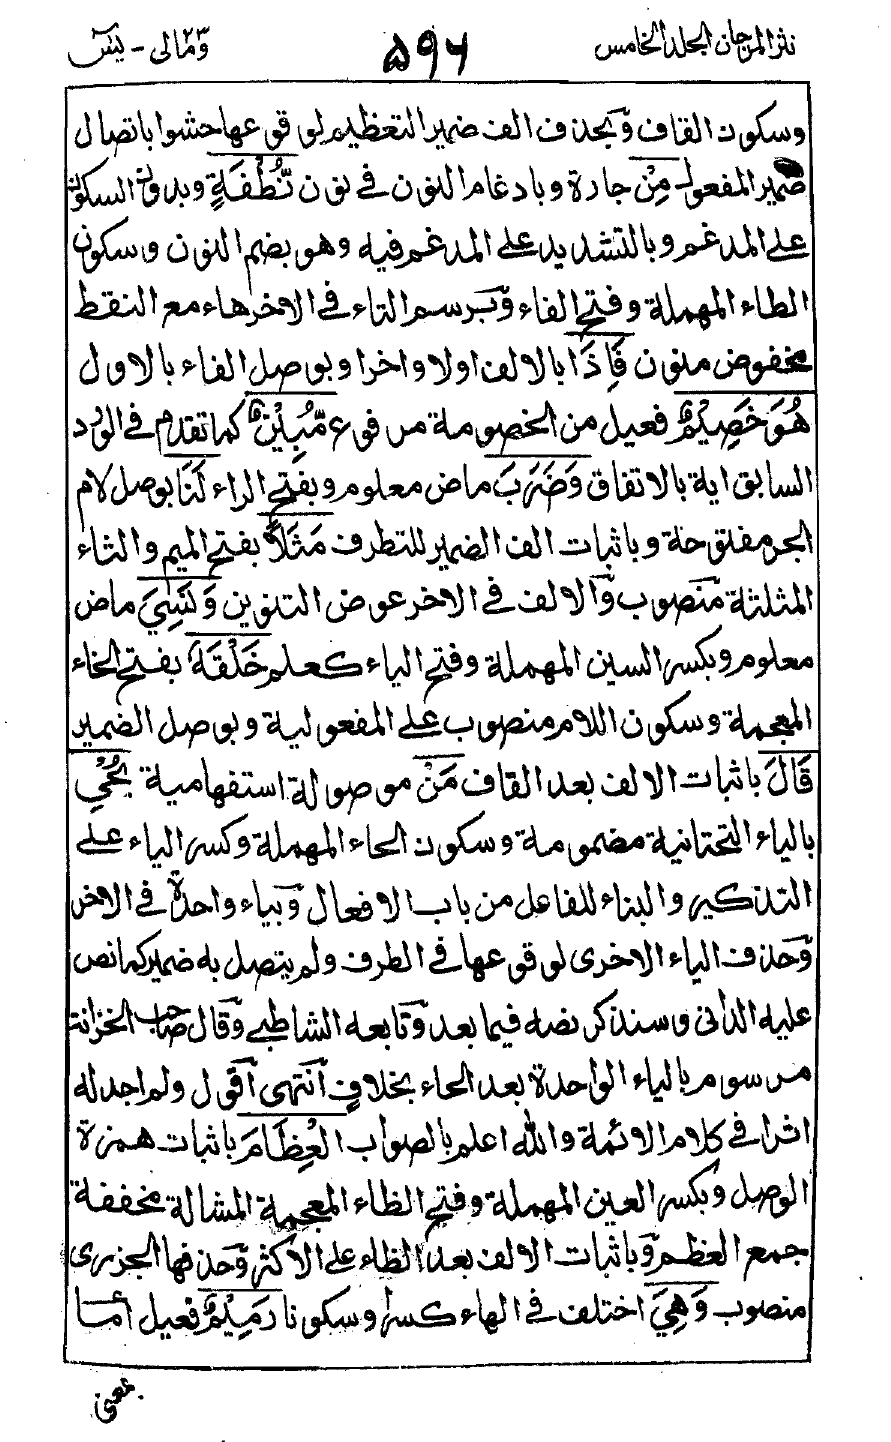 نثر المرجان المجلد الخامس
٥٩٦
ومالى - يس
وسكون القاف وَبحذف الف ضمير التعظيم لوقوعها حشوا باتصال
ضمير المفعول مِنْ جارة وبادغام النون فى نون نُّطْفَةٍ وبدون السكون
على المدغم وبالتشديد على المدغم فيه وهو بضم النون وسكون
الطاء المهملة وفتح الفاء وَبرسم التاء فى الاخر هاء مع النقط
مخفوض منون فَإِذَا بالالف اولا واخرا وبوصل الفاء بالاول
هُوَ خَصِيْمٌ فعيل من الخصومة مرفوع مُّبِيْنٌ كما تقدم فى الورد
السابق اية بالاتفاق وَضَرَبَ ماض معلوم وبفتح الراء لَنَا بوصل لام
الجر مفتوحة وباثبات الف الضمير للتطرف مَثَلًا بفتح الميم والثاء
المثلثة منصوب وَالالف فى الاخر عوض التنوين وَنَسِيَ ماض
معلوم وبكسر السين المهملة وفتح الياء كعلم خَلْقَهٗ بفتح الخاء
المعجمة وسكون اللام منصوب على المفعولية وبوصل الضمير
قَالَ باثبات الالف بعد القاف مَنْ موصولة استفهامية يُحْيِ
بالياء التحتانية مضمومة وسكون الحاء المهملة وكسر الياء على
التذكير والبناء للفاعل من باب الافعال وَبياء واحدة فى الاخر
وَحذف الياء الاخرى لوقوعها فى الطرف ولم يتصل به ضمير كما نص
عليه الدانى وسنذكر نصه فيما بعد وَتابعه الشاطبى وَقال صاحب الخزانة
مرسوم بالياء الواحدة بعد الحاء بخلافٍ انتهى اقول ولم اجد له
اثرا فى كلام الائمة والله اعلم بالصواب العِظَامَ باثبات همزة
الوصل وبكسر العين المهملة وفتح الظاء المعجمة المشالة مخففة
جمع العظم وَباثبات الالف بعد الظاء على الاكثر وَحذفها الجزرى
منصوب وَهِيَ اختلف فى الهاء كسرا وسكونا رَمِيْمٌ فعيل اما
بمعنى